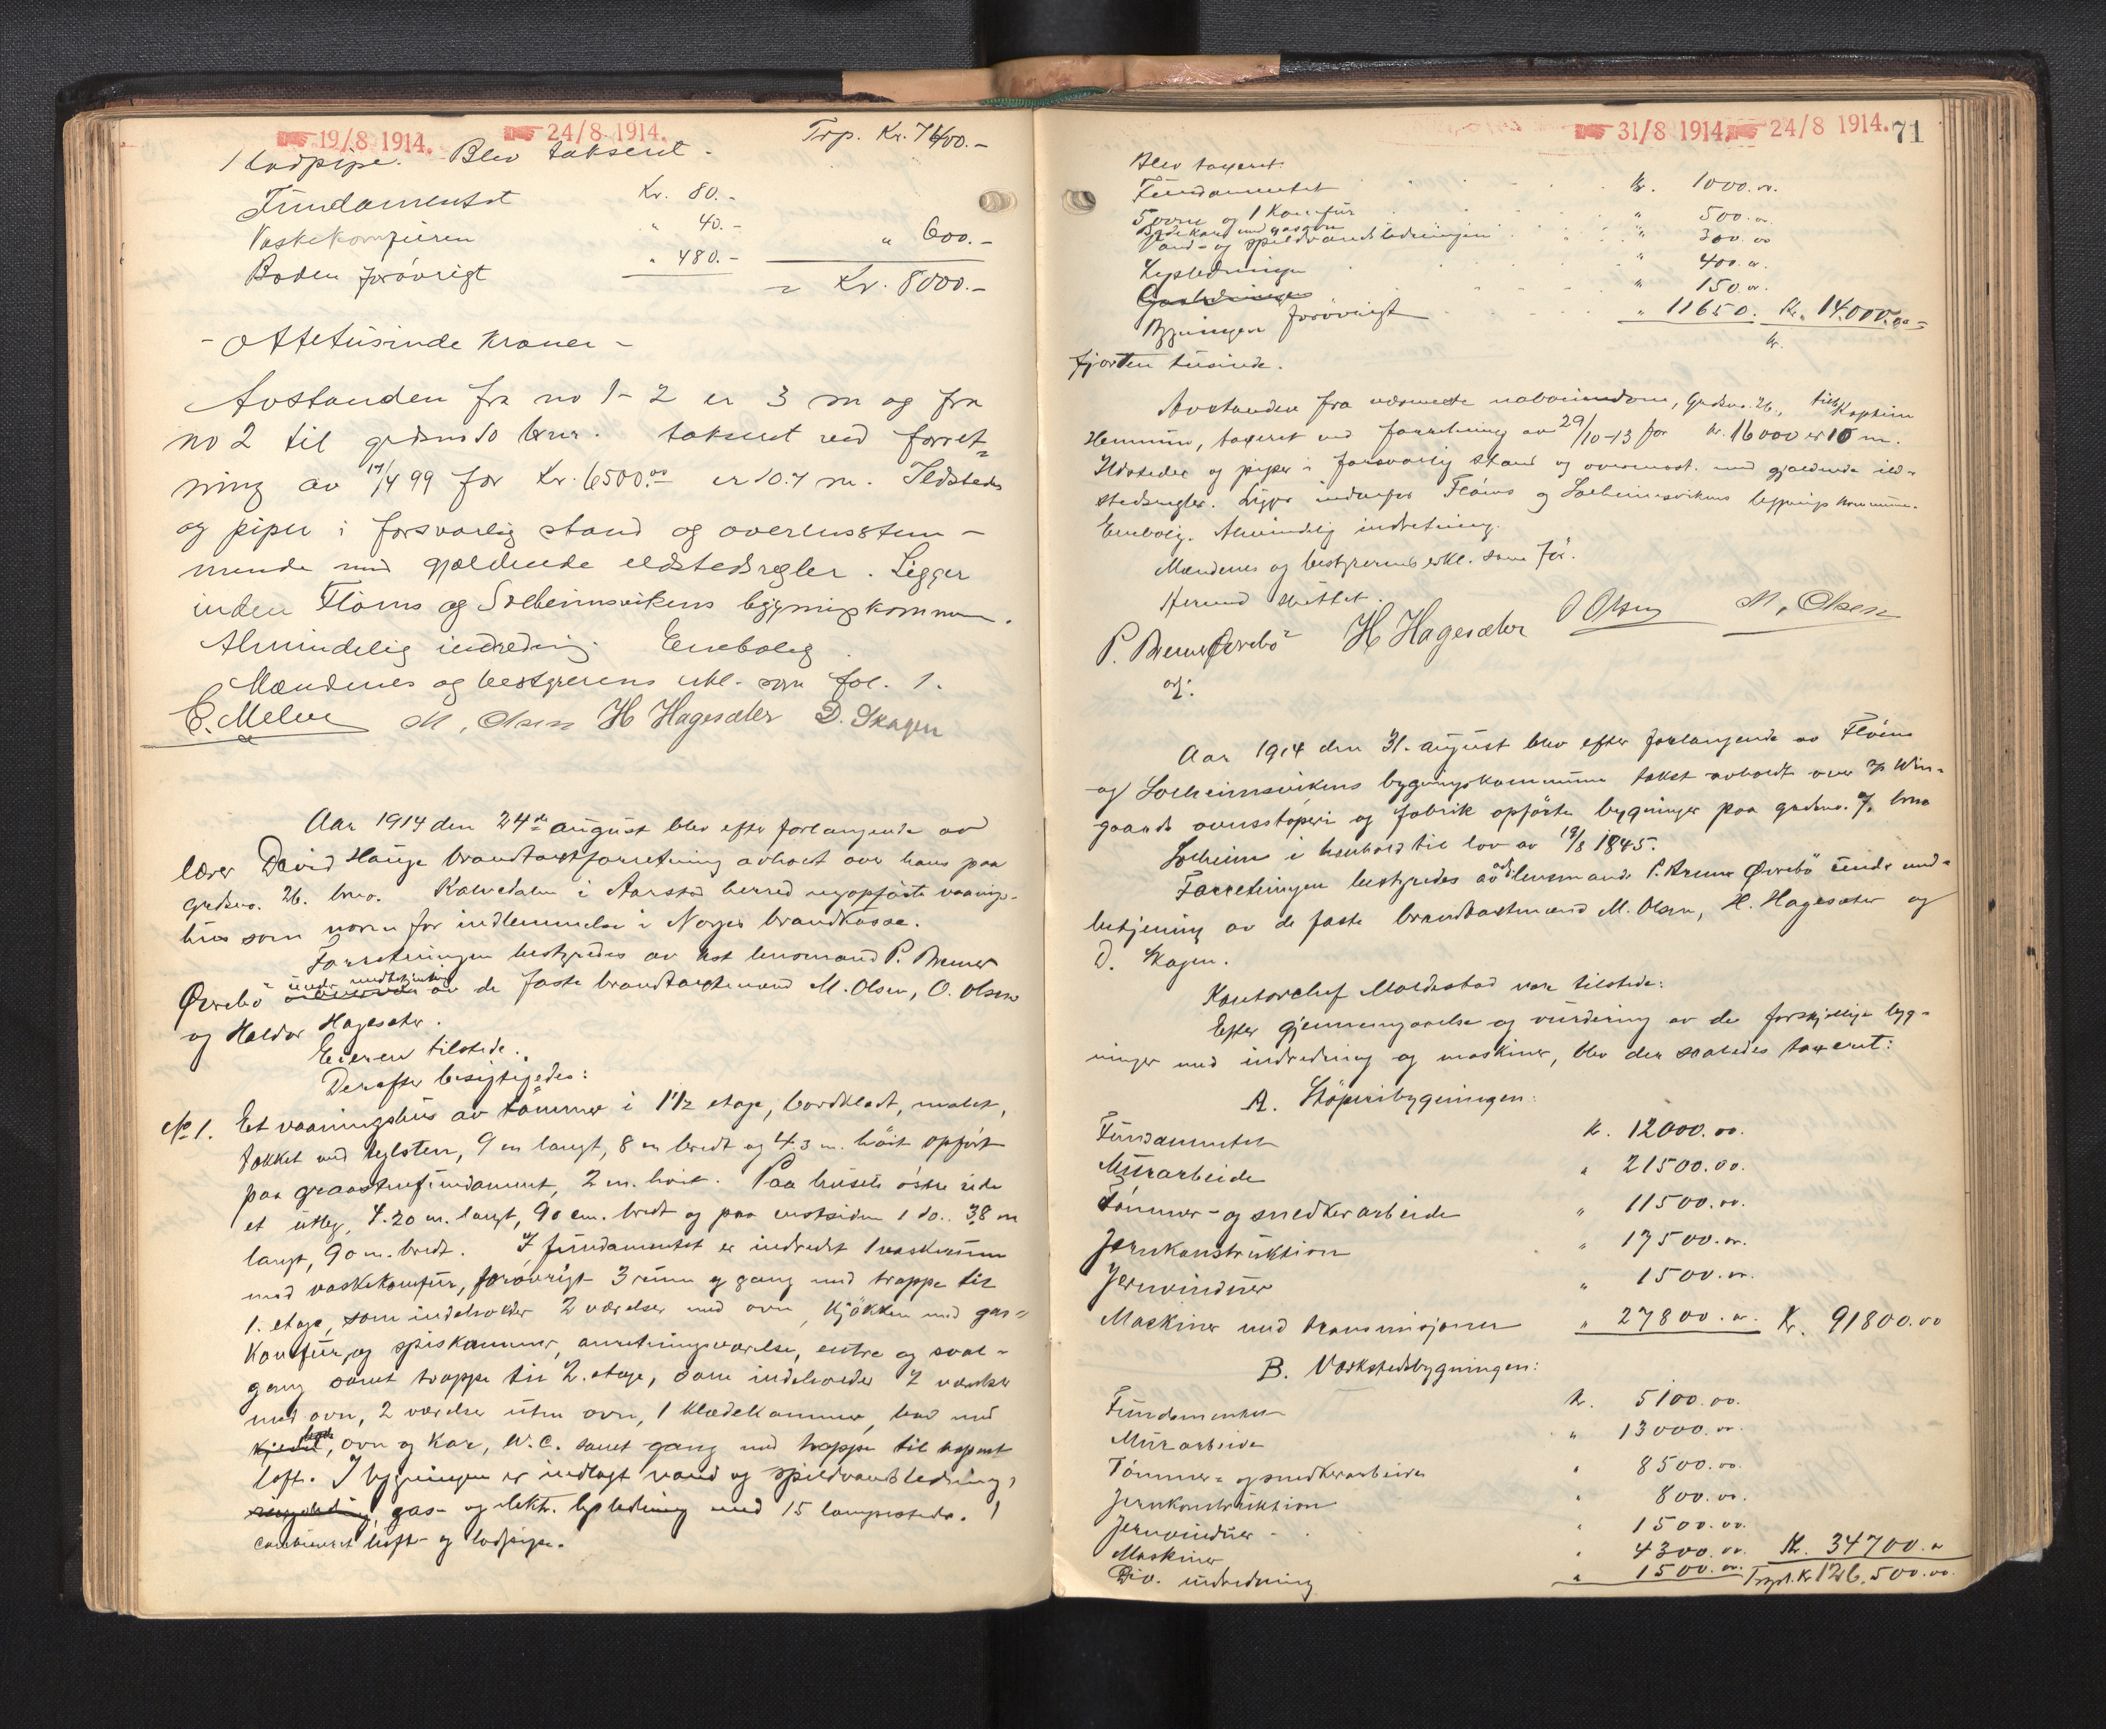 19/8 1914. 24/8 1914. Trp. Kr. 7400.-
1 lodpipe. Blev takseret -
Fundamentet Kr. 80.-
Vaskekomfuren " 40.-
Boden forøvrigt " 480.- " 600.-
Kr. 8000.-
- Ottetusinde kroner -
Avstanden fra no 1-2 er 3 m og fra
no 2 til grdsno 10 takseret ved forret-
ning av 17/4 99 for Kr. 6500.00 er 10.7 m. Ildsteder
og piper i forsvarlig stand og overensstem-
mende med gjældende ildstedsregler. Ligger
inden Fløens og Solheimsvikens bygningskommune.
Almindelig indredning. Enebolig.
Mændenes og bestyrerens erkl. som fol. 1.
E. Melve M. Olsen H Hagesæter D. Skagen
Aar 1914 den 24de august blev efter forlangende av
lærer David Hauge brandtaxtforretning avholdt over hans paa
grdsno. 26. bno. Kalvedalen i Aarstad herred nyopførte vaanings-
hus som noren for indlemmelse i Norges brandkasse.
Forretningen bestyredes av lensmand P. Bremer
Øvrebö under medbetjening av de faste brandtaxtmænd M. Olsen, O. Olsen
og Haldor Hagesæter.
Eieren tilstede.
Derefter besigtigedes:
No 1. Et vaaningshus av tømmer i 1 1/2 etage, bordklædt, malet,
tækket med teglsten, 9 m langt, 8 m bredt og 4.3 m. høit opført
paa graastensfundament, 2 m. høit. Paa husets østre side
et utbyg, 4.20 m. langt, 90 cm. bredt og paa vestsiden 1 do. 3.8 m
langt, 90 m. bredt. I fundamentet er indredet 1 vaskerum
med vaskekomfur, forøvrigt 3 rum og gang med trappe til
1. etage, som indeholder 2 værelser med ovn, kjøkken med gas-
komfur, og spiskammer, anretningsværelse, entre og sval-
gang samt trappe til 2. etage, som indeholder 2 værelser
med ovn, 2 værelser uten ovn, 1 klædekammer, bad med
ovn og kar, W.C. samt gang med trappe til
loft. I bygningen er indlagt vand og spildvandsledning,
gas- og elektr. lysledning med 15 lampesteder. 1
combineret luft- og lodpipe.
31/8 1914. 24/8 1914. 71
Blev taxeret.
Fundamentet Kr. 1000.00
5 ovne og 1 komfur " 500.00
Badekar med gasovn
Vand- og spildvandsledningen " 300.00
Lysledningen " 400.00
Gasledningen " 150.00
Bygningen forøvrigt " 11650. Kr. 14.000.00
kr.
fjorten tusinde.
Avstanden fra nærmeste naboeiendom, grdsno. 26, tilh. Kaptein
Hennum, taxeret ved forretning av 29/10-13 for kr. 16000 er 10 m.
Ildsteder og piper i forsvarlig stand og overensst. med gjældende ild-
stedsregler. Ligger indenfor Fløens og Solheimsvikens bygnings kommune.
Enebolig. Almindelig indretning.
Mændenes og bestyrerens erkl. som før.
Herved sluttet.
P. Bremer Øvrebö H Hagesæter O Olsen M. Olsen
Aar 1914 den 31. august blev efter forlangende av Fløens
og Solheimsvikens bygningskommune takst avholdt over Win-
gaards ovnsstøperi og fabrik opførte bygninger paa grdsno. 7. bno
Solheim i henhold til lov av 19/8 1845.
Forretningen bestyredes av lensmand P. Bremer Øvrebö under med-
betjening av de faste brandtaxtmænd M. Olsen, H. Hagesæter og
D. Skagen.
Kontorchef Moldestad var tilstede:
Efter gjennemgaaelse og vurdering av de forskjellige byg-
ninger med indredning og maskiner, blev der saaledes taxeret:
A. Støperibygningen:
Fundamentet kr. 12000.00.
Murarbeide " 21500.00.
Tømmer- og snedkerarbeide " 11500.00.
Jernkonstruktion " 17500.00.
Jernvinduer " 1500.00.
Maskiner med transmisjoner " 27800.00. Kr. 91800.00
B. Verkstedsbygningen:
Fundamentet kr. 5100.00.
Murarbeide " 13000.00.
Tømmer- og snedkerarbeide " 8500.00.
Jernkonstruktion " 800.00.
Jernvinduer " 1500.00.
Maskiner " 4300.00. Kr. 34700.00
Div. indredning " 1500.00. Trspt. Kr 126.500.00.